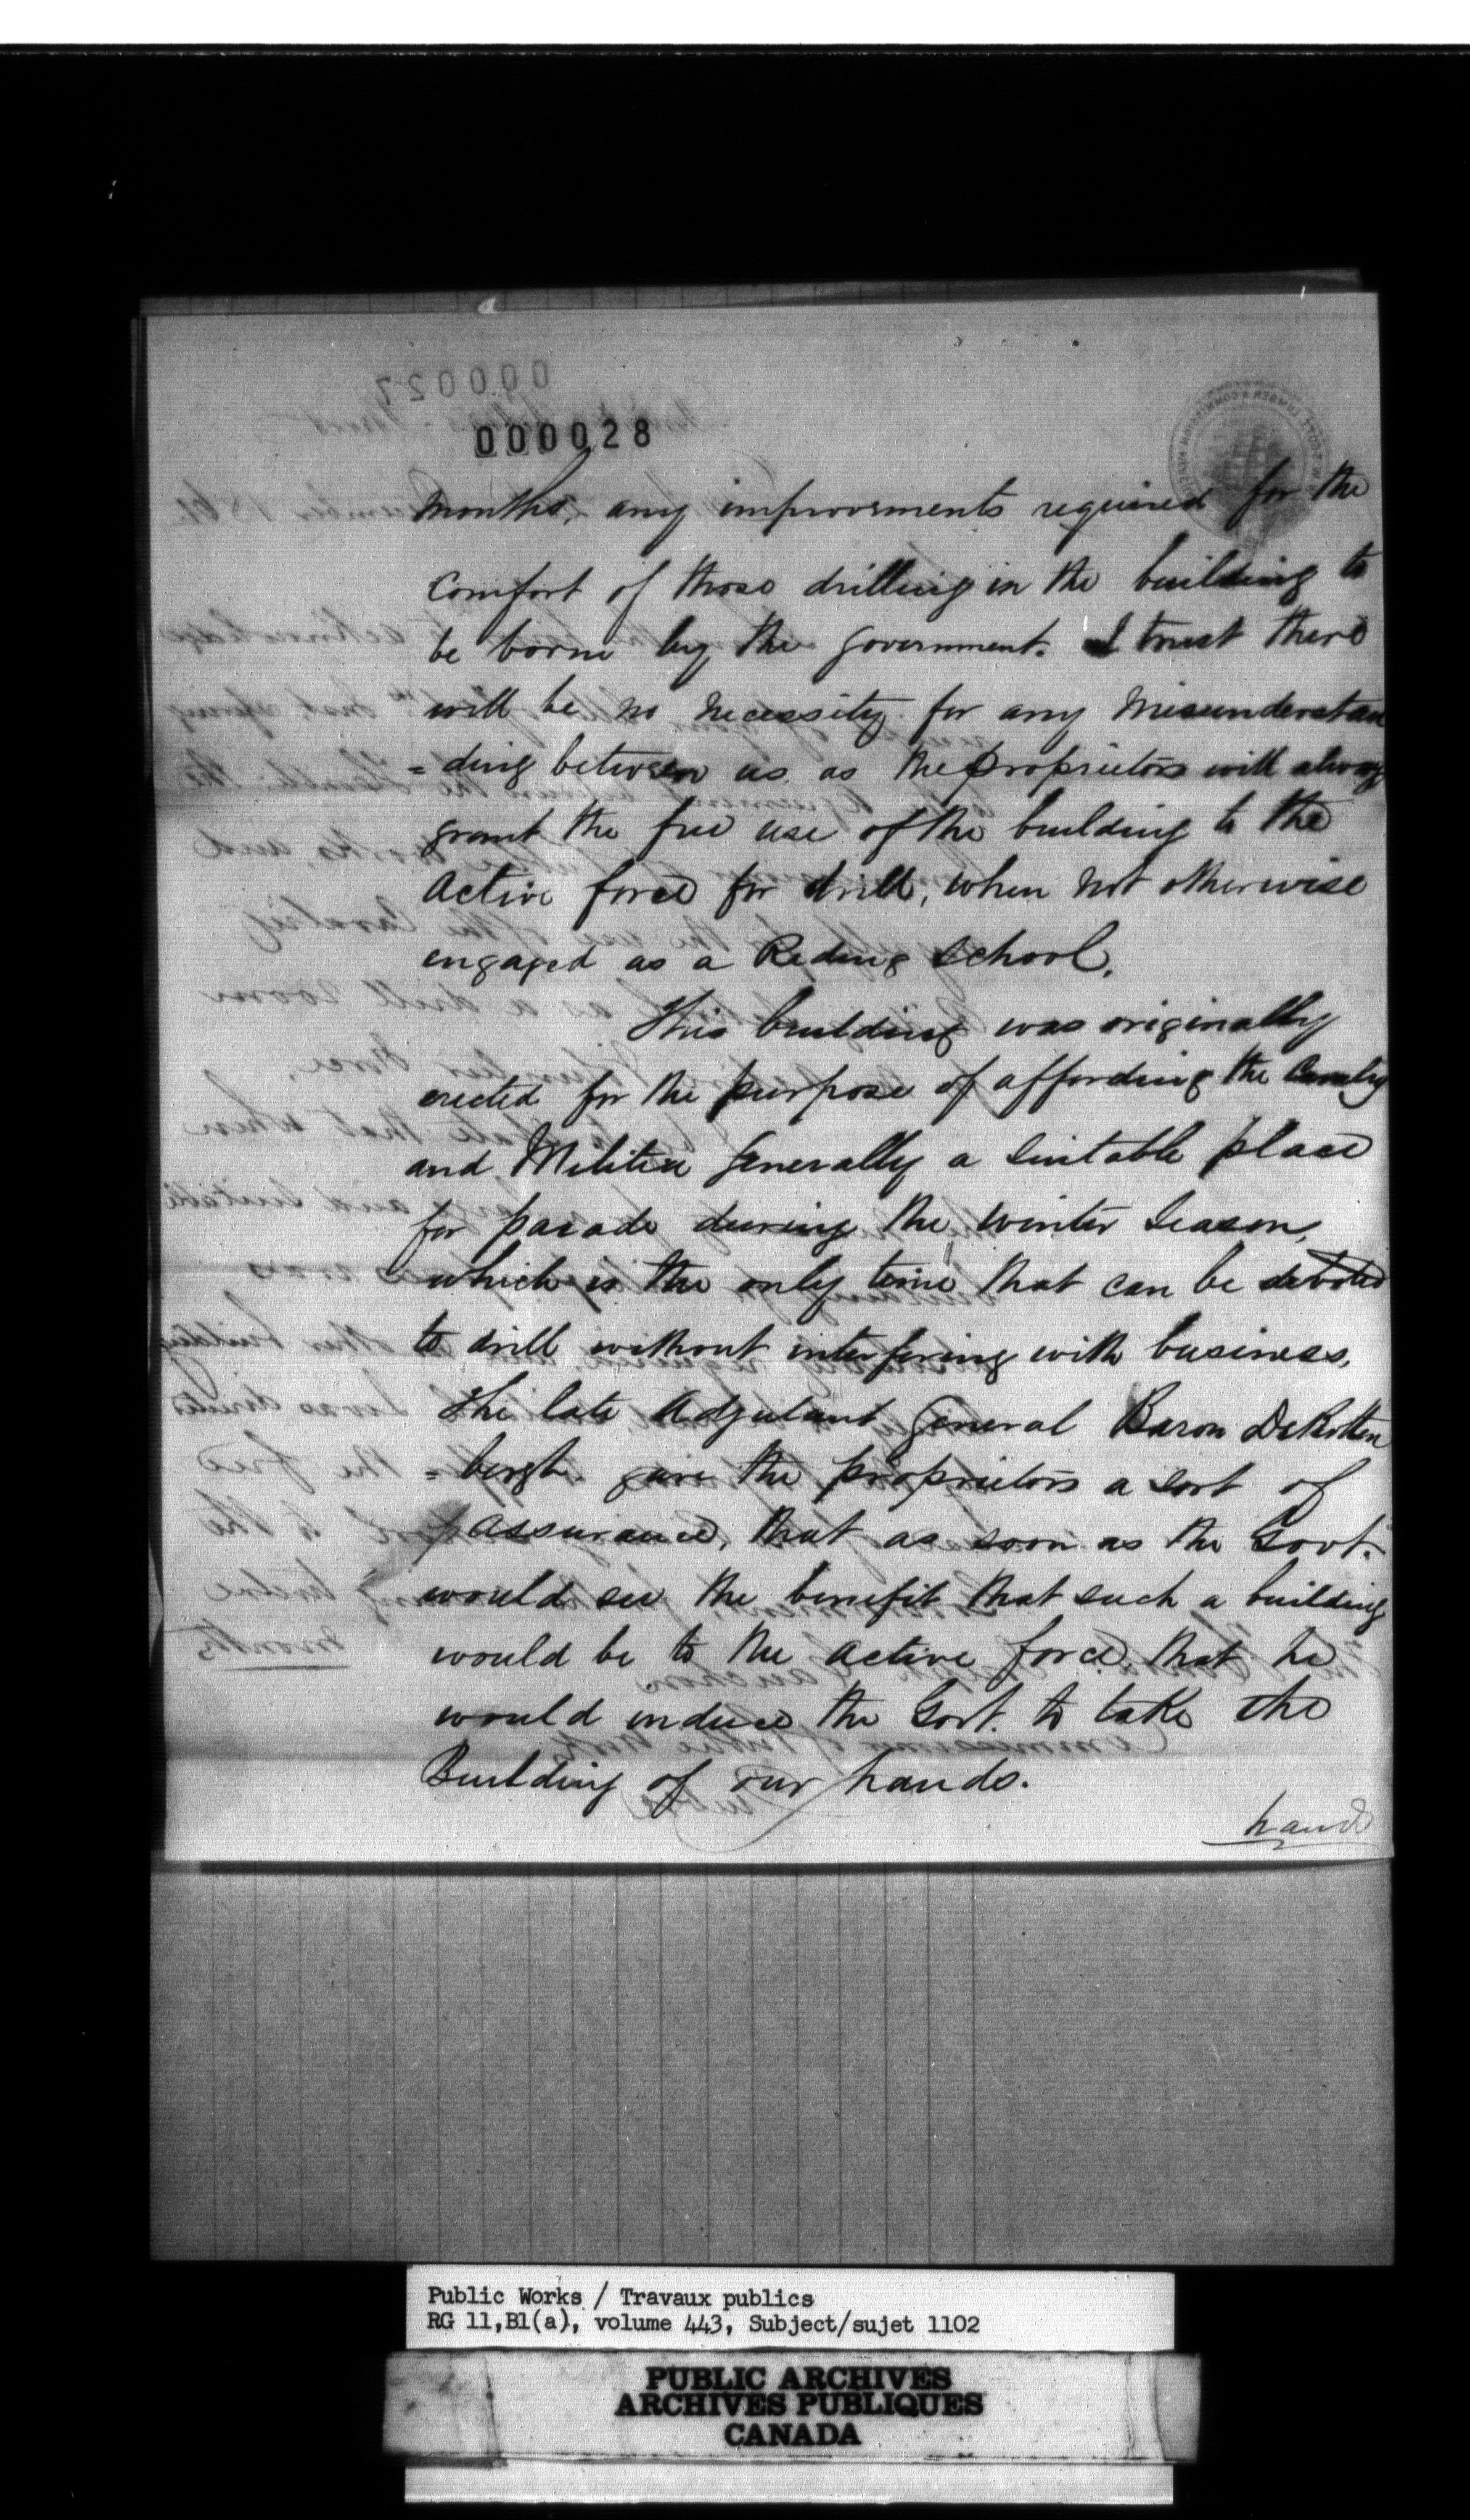 000027
000028
months, any improvements required for the
comfort of those drilling in the building to
be borne by the government. I trust there
will be no necessity for any misunderstan
=ding between us as the proprietors will always
grant the free use of the building to the
active force for drill, when not otherwise
engaged as a Reding School.
This building was originally
erected for the purpose of affording the Cavalry
and Militia generally a suitable place
for parade during the winter season,
which is the only time that can be devoted
to drill without interfering with business.
The late Adjutant General Baron DeRotten
=burgh. gave the proprietors a sort of
assurance, that as soon as the Govt.
would see the benefit that such a building
would be to the active force, that he
would induce the Govt. to take the
Building of our hands.
hand
Public Works / Travaux publics
RG 11,B1(a), volume 443, Subject/sujet 1102
PUBLIC ARCHIVES
ARCHIVES PUBLIQUES
CANADA